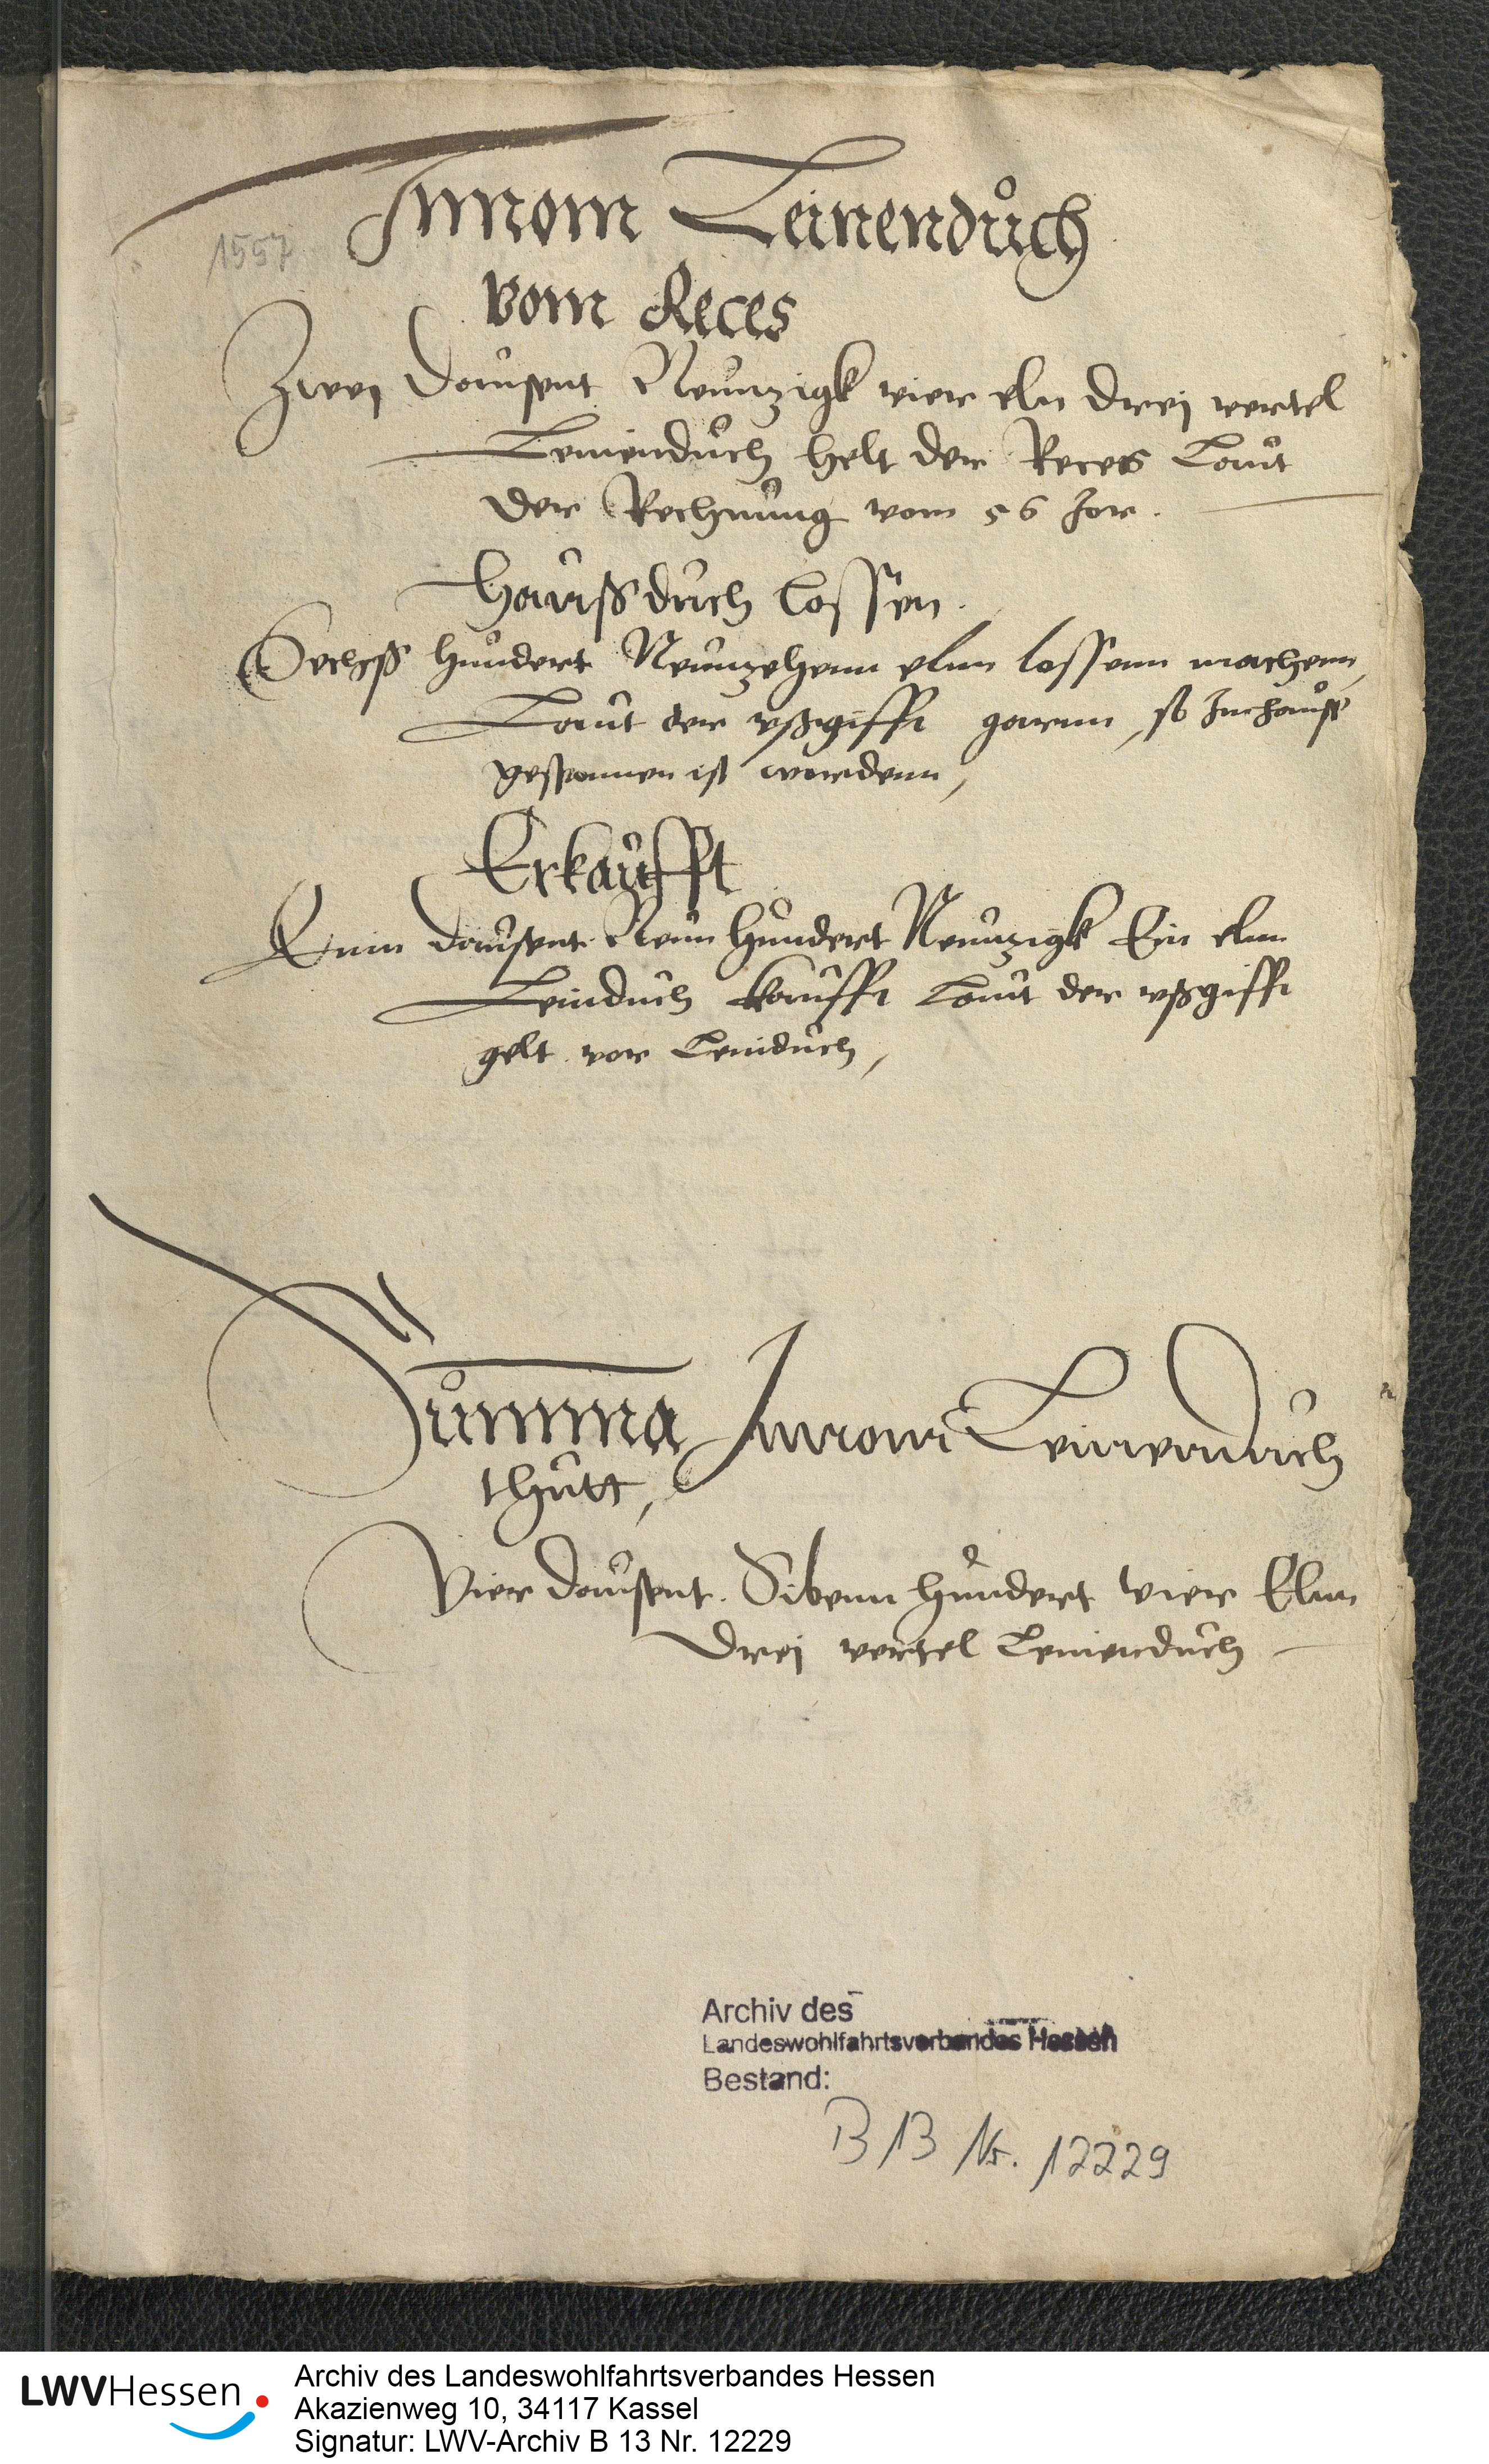 Innom Leinenduch
1557
vom Reces
Zwei Dausent Neunzigk vier eln Drei vertel
Leinenduch helt der Reces Laut
der Rechnung vom 56 Jor.
Haußduch lossen.
Sechß hundert Neunzehenn elnn lossenn machenn,
Laut der vßgifft garnn, so Inhauß
gesponnen ist wordenn,
Erkaufft
Einn Dausent Neun hundert Neunzigk Ein elnn
Leinduch kaufft Laut der vßgifft
gelt vor Leinduch,
Summa Innom Leinenduch
thutt,
Vier Dausent. Sibenn hundert vier Elnn
Drei vertel Leinenduch
Archiv des
Landeswohlfahrtsverbandes Hessen
Bestand:
B 13 Nr. 12229
LWVHessen
Archiv des Landeswohlfahrtsverbandes Hessen
Akazienweg 10, 34117 Kassel
Signatur: LWV-Archiv B 13 Nr. 12229